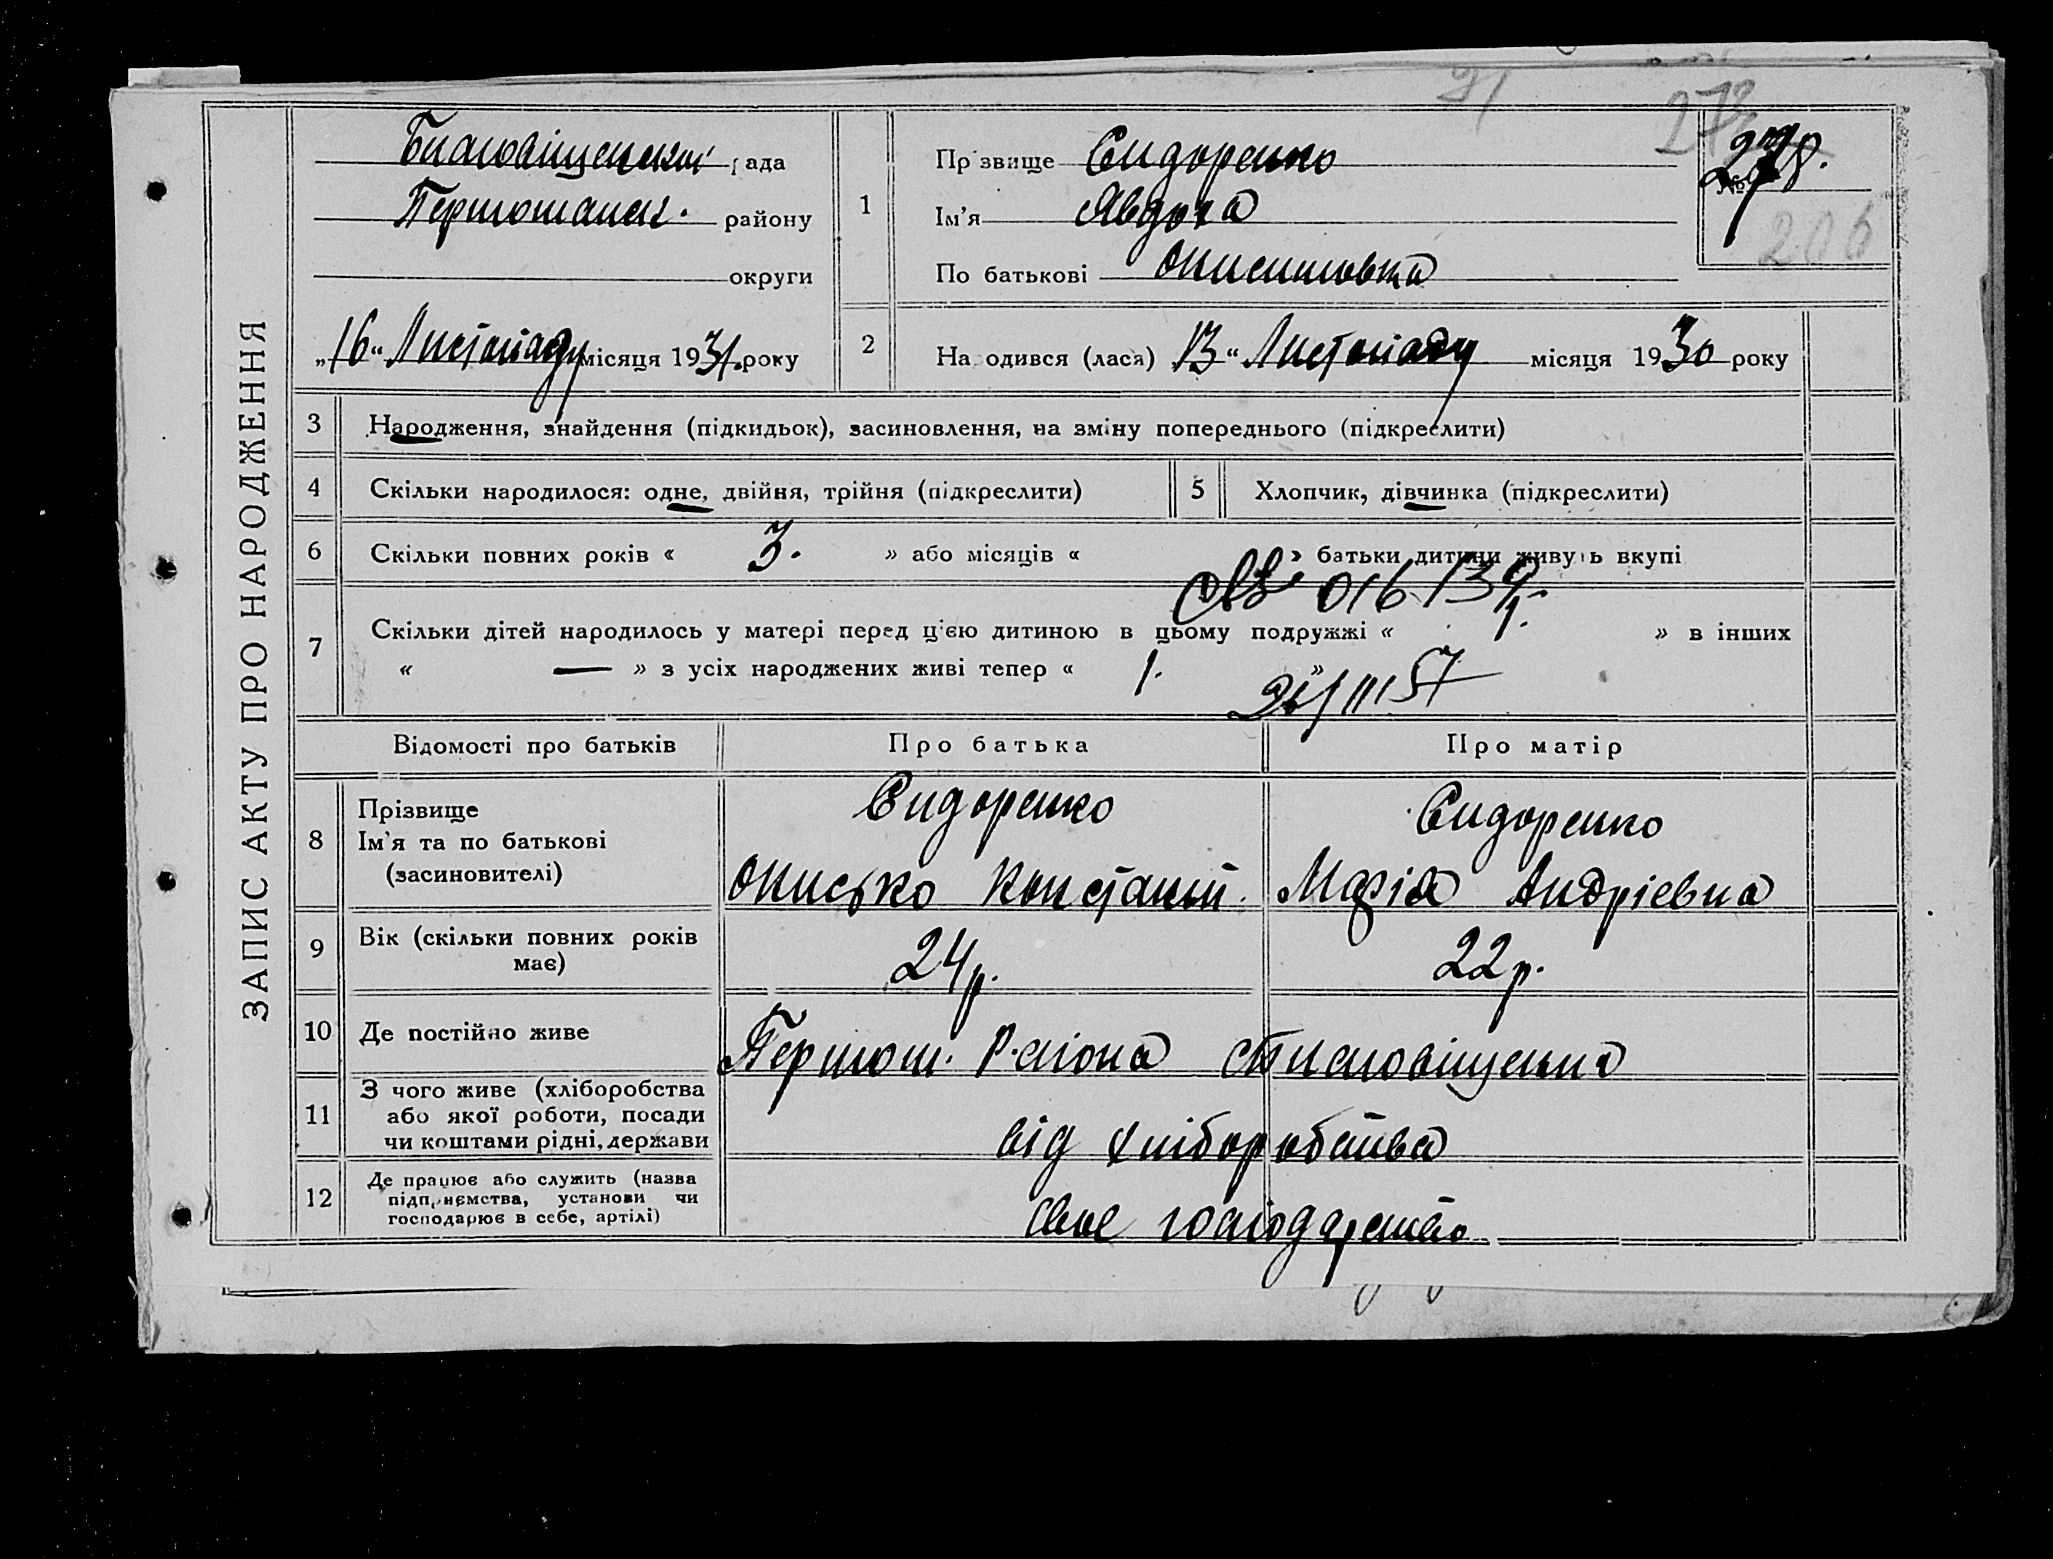 ЗАПИС АКТУ ПРО НАРОДЖЕННЯ
рада
району
округи
„16“ Листопаду місяця 1931. року
1
Прізвище Сидоренко
Ім'я Явдоха
По батькові Онисимовна
№ 278.
206
2
Народився (лася) 13 “ Листопаду місяця 1930 року
3 Народження, знайдення (підкидьок), засиновлення, на зміну попереднього (підкреслити)
4 Скільки народилося: одне, двійня, трійня (підкреслити)
5 Хлопчик, дівчинка (підкреслити)
6 Скільки повних років « 3. » або місяців « » батьки дитини живуть вкупі
016139
7 Скільки дітей народилось у матері перед цією дитиною в цьому подружжі « 1. » в інших
« — » з усіх народжених живі тепер « 1. »
Відомості про батьків Про батька Про матір
8 Прізвище
Ім'я та по батькові
(засиновителі)
Сидоренко
Онисько Констант.
Сидоренко
Марія Андріевна
9 Вік (скільки повних років
має)
24 р.
22 р.
10 Де постійно живе
Першом. Района
11 З чого живе (хліборобства
або якої роботи, посади
чи коштами рідні, держави
від хліборобства
12 Де працює або служить (назва
підприємства, установи чи
господарює в себе, артілі)
свое господарство